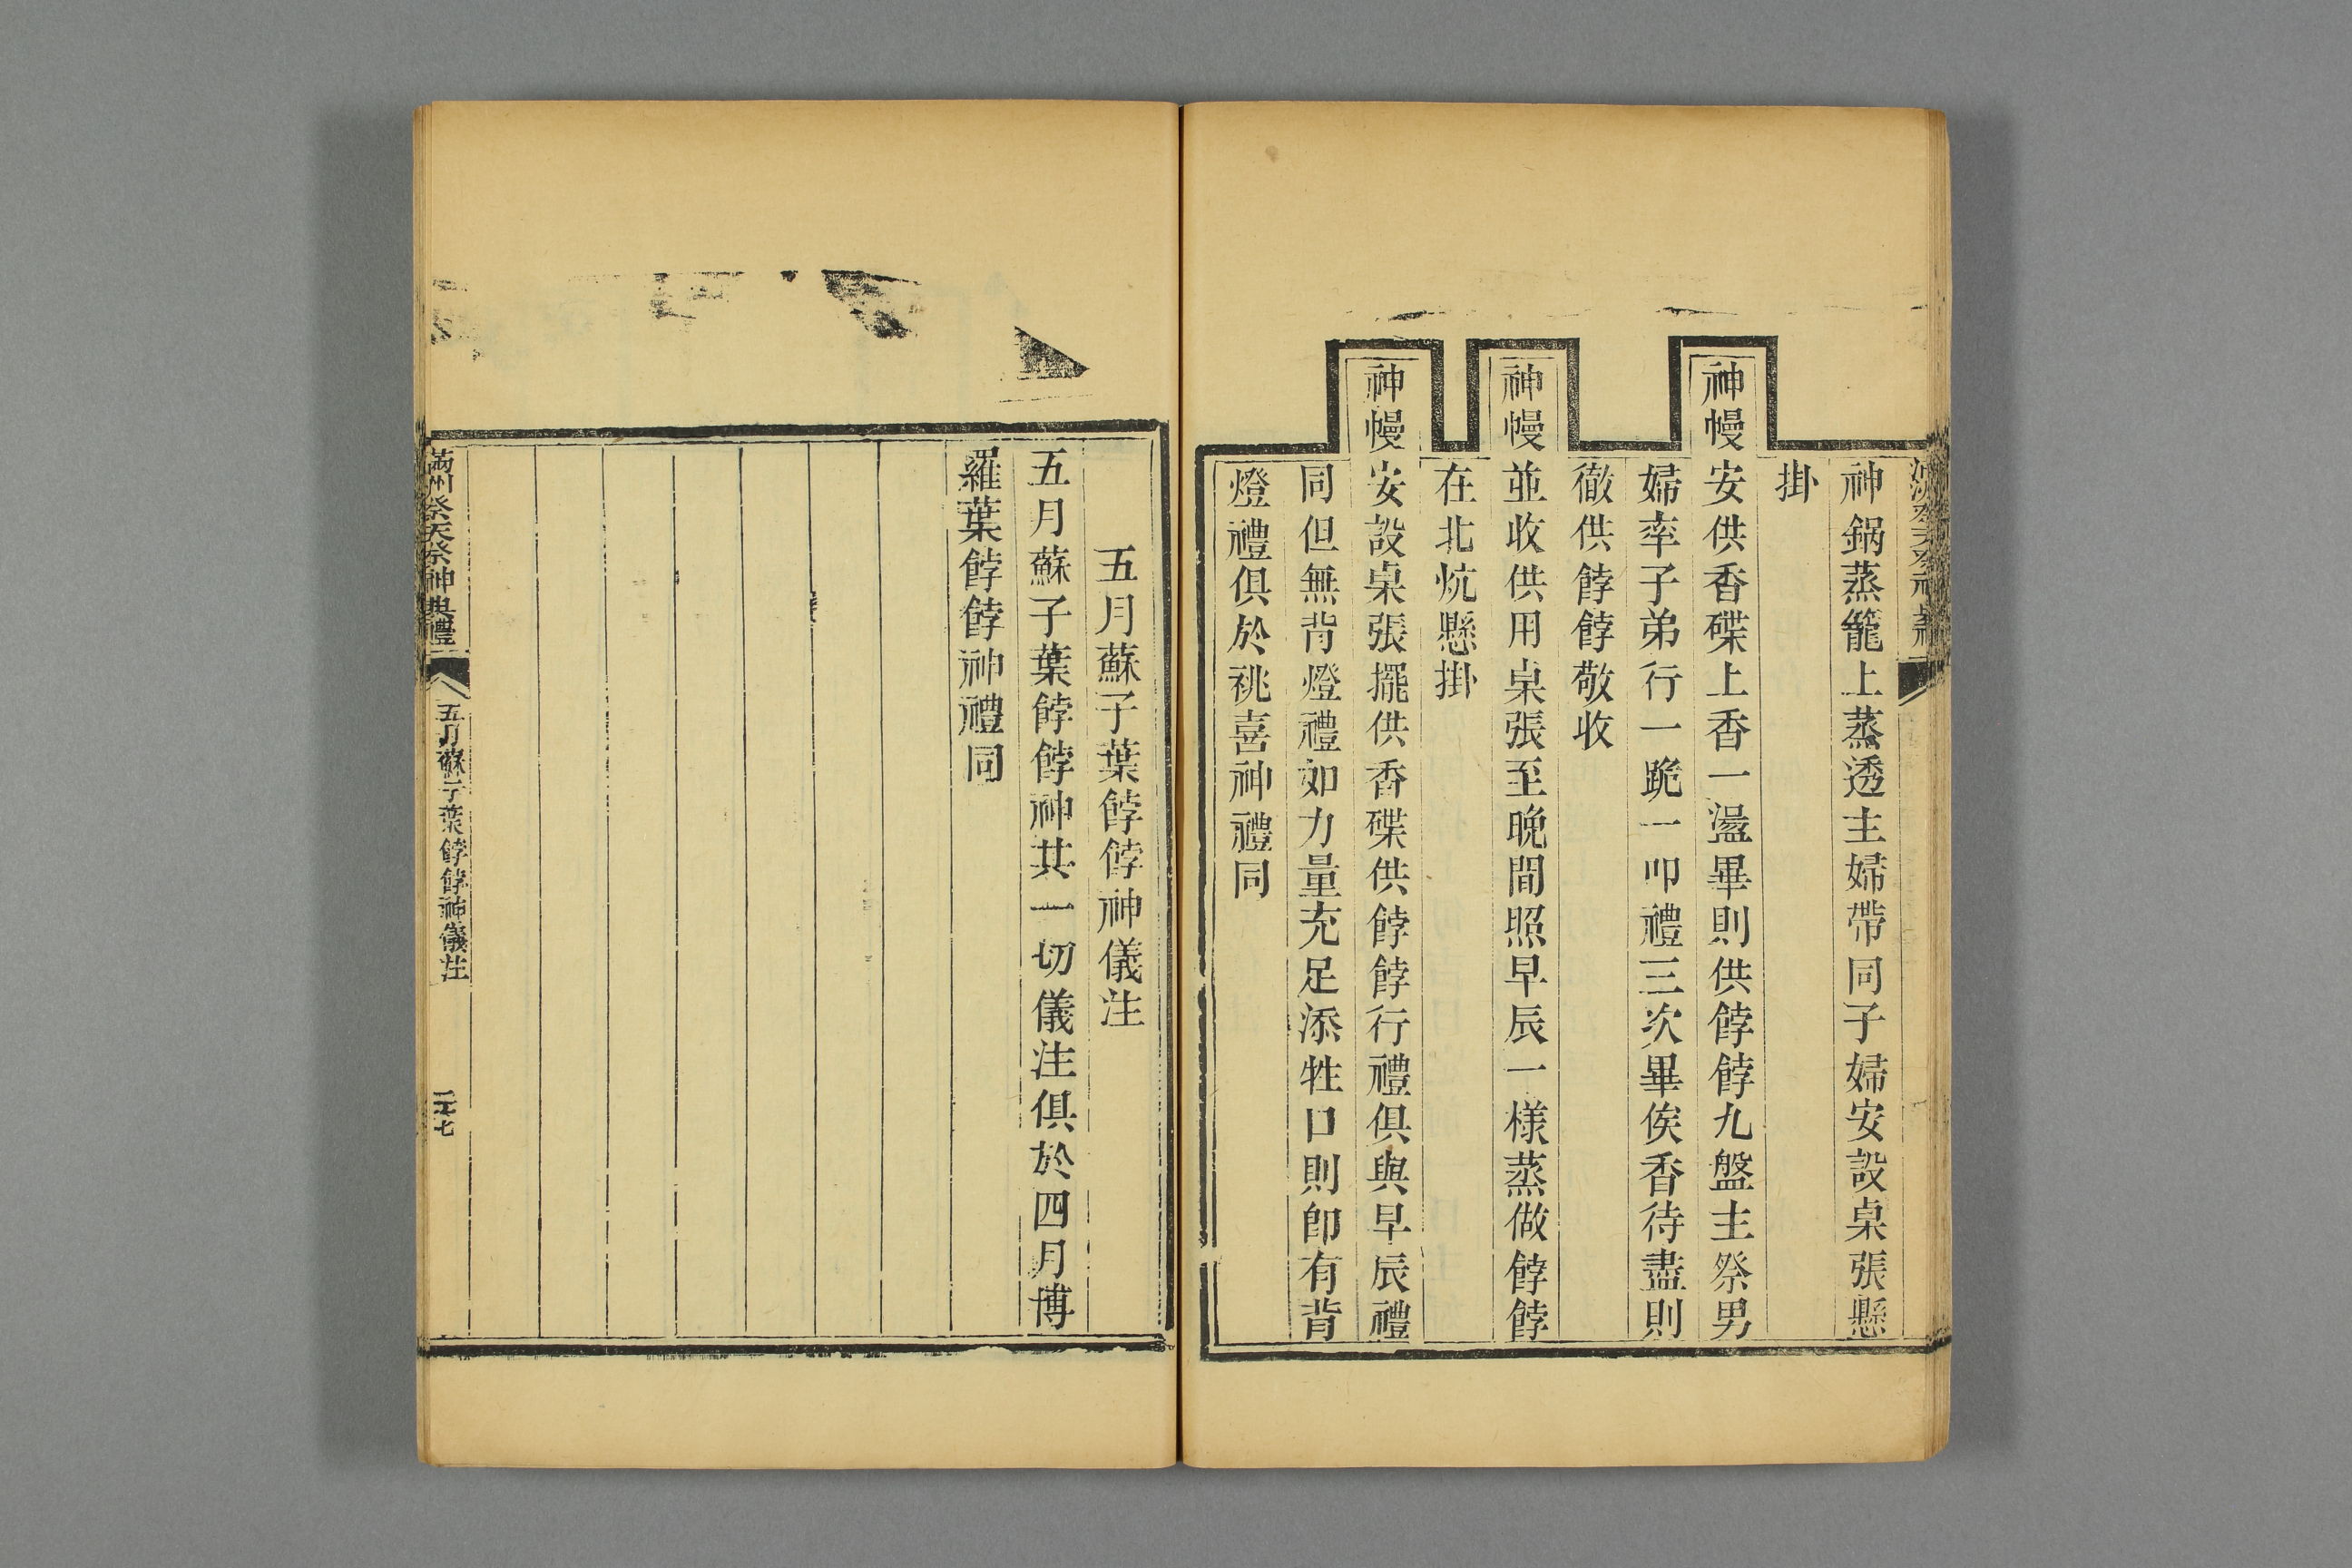 神鍋蒸籠上蒸透主婦帶同子婦安設桌張懸
掛
神幔安供香碟上香一盪畢則供餑餑九盤主祭男
婦率子弟行一跪一叩禮三次畢俟香待盡則
徹供餑餑敬收
神幔並收供用桌張至晚間照早辰一樣蒸做餑餑
在北炕懸掛
神幔安設桌張擺供香碟供餑餑行禮俱與早辰禮
同但無背燈禮如力量充足添牲口則卽有背
燈禮俱於祧喜神禮同
五月蘇子葉餑餑神儀注
五月蘇子葉餑餑神其一切儀注俱於四月博
羅葉餑餑神禮同
滿州祭天祭神典禮
五月蘇子葉餑餑神儀注